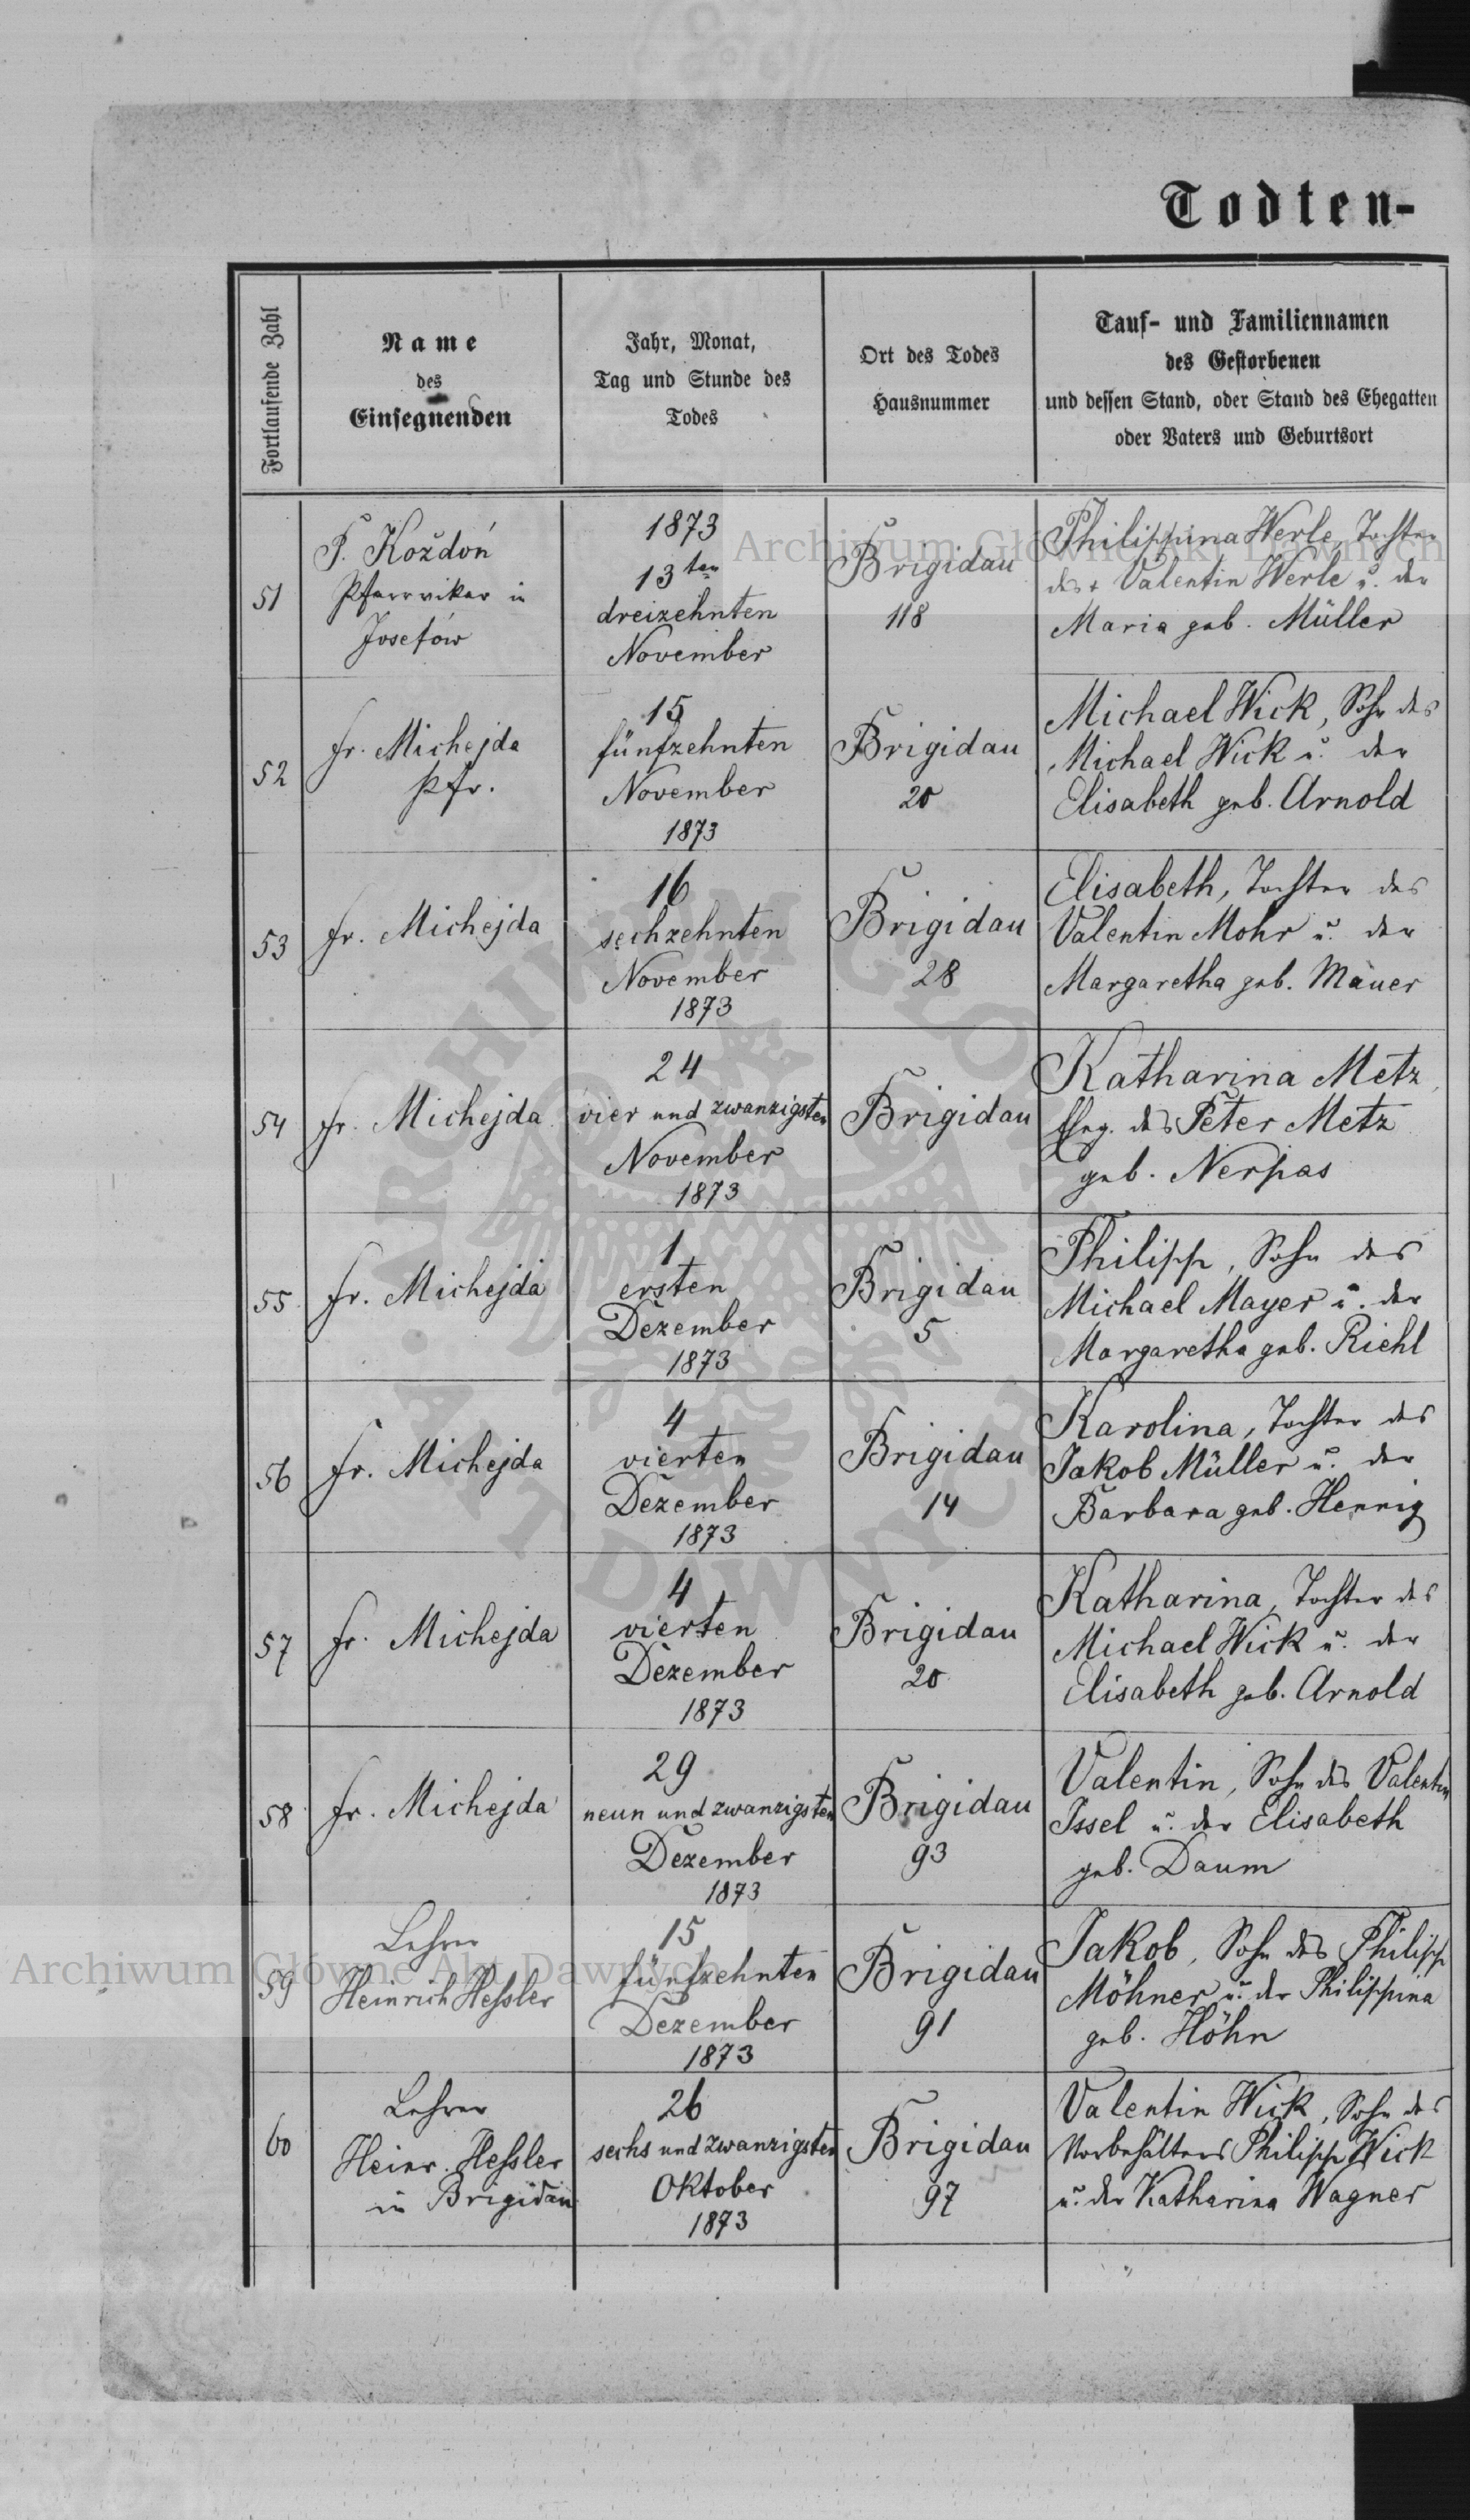 Todten-
Fortlaufende Zahl
Name
des
Einsegnenden
Jahr, Monat,
Tag und Stunde des
Todes
Ort des Todes
Hausnummer
Tauf- und Familiennamen
des Gestorbenen
und dessen Stand, oder Stand des Ehegatten
oder Vaters und Geburtsort
51
P. Koždoń
Pfarrvikar in
Josefów
1873
13ten
dreizehnten
November
Brigidau
118
Philippina Werle, Tochter
des + Valentin Werle u. der
Maria geb. Müller
52
Fr. Michejda
Pfr.
15
fünfzehnten
November
1873
Brigidau
20
Michael Wick, Sohn des
Michael Wick u. der
Elisabeth geb. Arnold
53
Fr. Michejda
16
sechzehnten
November
1873
Brigidau
28
Elisabeth, Tochter des
Valentin Mohr u. der
Margaretha geb. Mauer
54
Fr. Michejda
24
vier und zwanzigsten
November
1873
Brigidau
Katharina Metz,
Eheg. des Peter Metz
geb. Nerpas
55
Fr. Michejda
1
ersten
Dezember
1873
Brigidau
5
Philipp, Sohn des
Michael Mayer u. der
Margaretha geb. Riehl
56
Fr. Michejda
4
vierten
Dezember
1873
Brigidau
14
Karolina, Tochter des
Jakob Müller u. der
Barbara geb. Hennig
57
Fr. Michejda
4
vierten
Dezember
1873
Brigidau
20
Katharina, Tochter des
Michael Wick u. der
Elisabeth geb. Arnold
58
Fr. Michejda
29
neun und zwanzigsten
Dezember
1873
Brigidau
93
Valentin, Sohn des Valentin
Issel u. der Elisabeth
geb. Daum
59
Lehrer
Heinrich Heßler
15
fünfzehnten
Dezember
1873
Brigidau
91
Jakob, Sohn des Philipp
Möhner u. der Philippina
geb. Höhn
60
Lehrer
Heinr. Heßler
in Brigidau
26
sechs und zwanzigsten
Oktober
1873
Brigidau
97
Valentin Wick, Sohn des
Vorbehälters Philipp Wick
u. der Katharina Wagner
Archiwum Główne Akt Dawnych
Archiwum Główne Akt Dawnych
ARCHIWUM GŁÓWNE AKT DAWNYCH